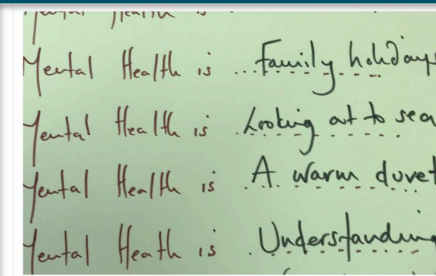 Mental Health is
Mental Health is ... Family holidays
Mental Health is . Looking out to sea
Mental Health is . A warm duvet
Mental Heath is . Understanding